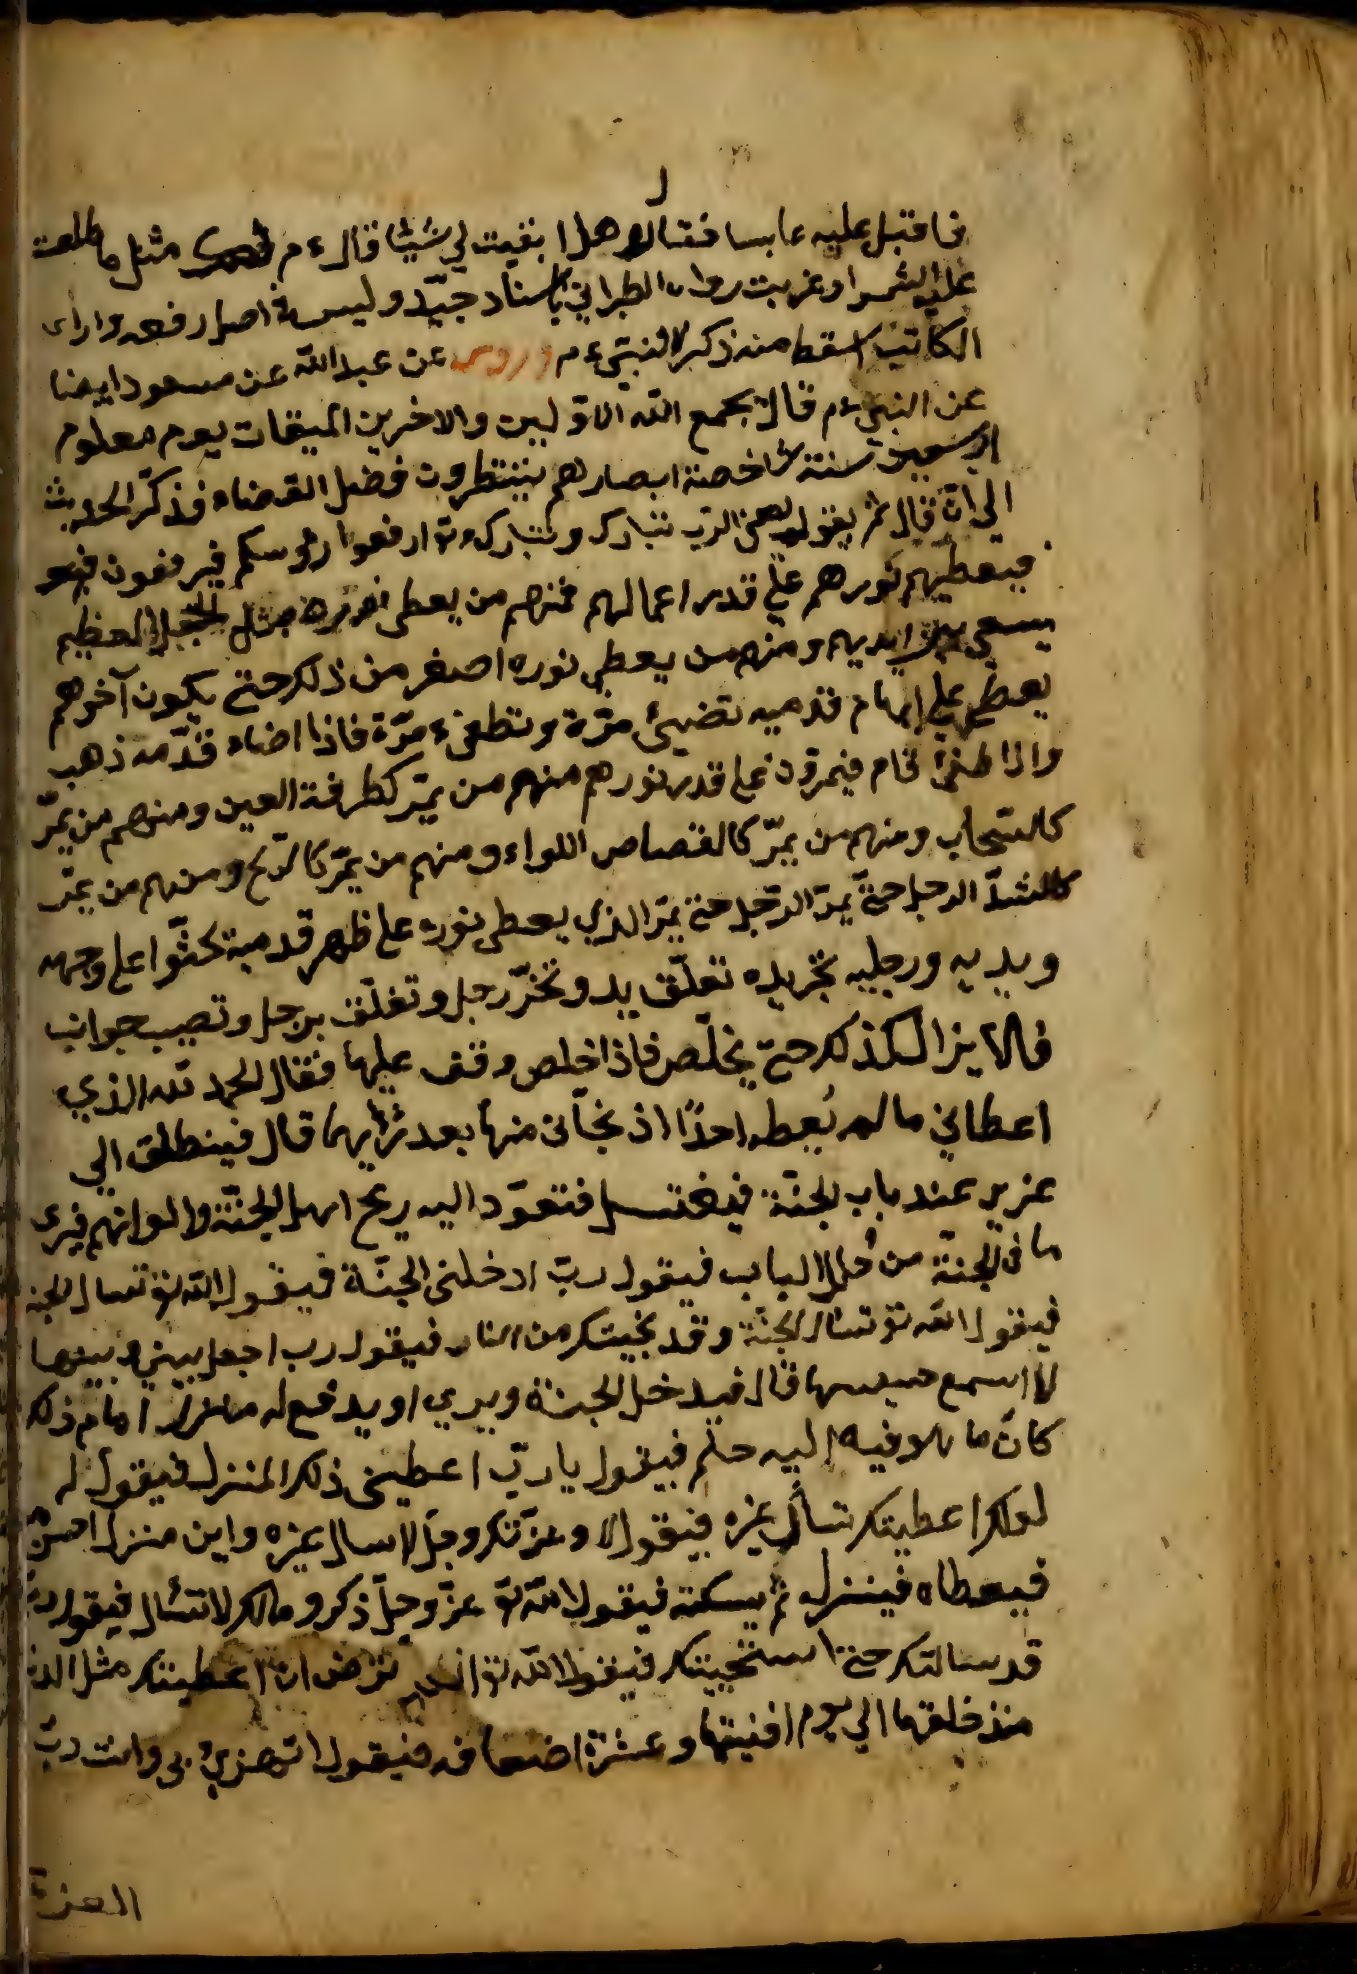 فاقبل عليه عابسا فقال هل ابقيت لي شيئا قال ءم لك مثل ما طلعت
عليه الشمس او غربت رواه الطبراني باسناد جيد وليس في اصله رفعه وارى
الكاتب اسقط منه ذكر النبي ءم وروى عن عبد الله عن مسعود ايضا
عن النبي ءم قال يجمع الله الاولين والاخرين لميقات يوم معلوم
اربعين سنة شاخصة ابصارهم ينتظرون فصل القضاء فذكر الحديث
الى ان قال ثم يقول يعني الرب تبارك وتبارك وتع ارفعوا رؤسكم فيرفعون
فيعطيهم نورهم على قدر اعمالهم فمنهم من يعطى نوره مثل الجبل العظيم
يسعى بين ايديهم ومنهم من يعطى نوره اصغر من ذلك حتى يكون آخرهم
يعطى على ابهام قدميه تضيئ مرة وتطفئ مرة فاذا اضاء قدمه ذهب
واذا طفئ قام فيمرون على قدر نورهم منهم من يمر كطرفة العين ومنهم من يمر
كالسحاب ومنهم من يمر كانقضاض اللواء ومنهم من يمر كالريح ومنهم من يمر
كشد الرجل حتى يمر الرجل حتى يمر الذي يعطى نوره على ظهر قدميه تحثوا على وجهه
ويديه ورجليه تخر يده تعلق يد وتخر رجل وتعلق برجل وتصيب جوانب
فلا يزال كذلك حتى يخلص فاذا خلص وقف عليها فقال الحمد لله الذي
اعطاني ما لم يعط احدًا اذ نجاني منها بعد رأيها قال فينطلق الى
غدير عند باب الجنة فيغتسل فتعود اليه ريح اهل الجنة والوانهم فيرى
ما في الجنة من خلل الباب فيقول رب ادخلني الجنة فيقول الله تع تسال الجنة
فيقول الله تع تسال الجنة وقد نجيتك من النار فيقول رب اجعل بيني وبينها
لا اسمع حسيسها قال فيدخل الجنة ويرى او يدفع له منزل امام ذلك
كان ما هو فيه اليه حلم فيقول يا رب اعطيني ذلك المنزل فيقول له
لعلك اعطيتك تسأل غيره فيقول لا وعزتك وجل لا سال غيره واين منزل احسن
فيعطاه فينزله ثم يسكته فيقول الله تع عز وجل ذكر ومالك لا تسال فيقول رب
قد سالتك حتى استحييتك فيقول الله تع الم ترض ان اعطيتك مثل الدنيا
منذ خلقتها الى يوم افنيتها وعشرة اضعافه فيقول اتهزئ بي وانت رب
العزة